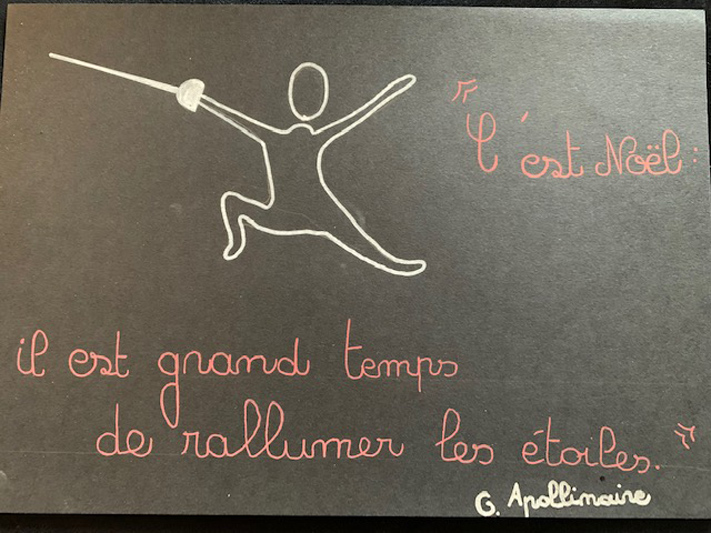 « C'est Noël :
il est grand temps
de rallumer les étoiles. »
G. Apollinaire